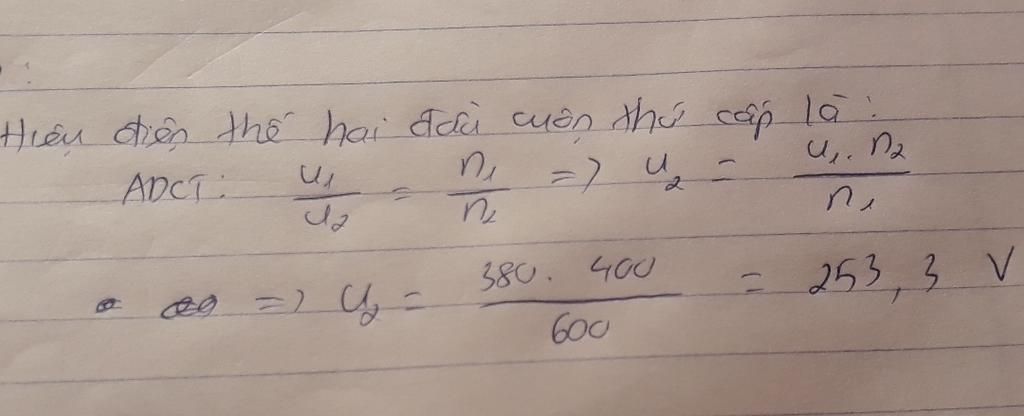 :
Hiệu điện thế hai đầu cuộn thứ cấp là:
ADCT: U1/U2 = n1/n2 => U2 = U1.n2/n1
=> U2 = 380.400/600 = 253,3 V